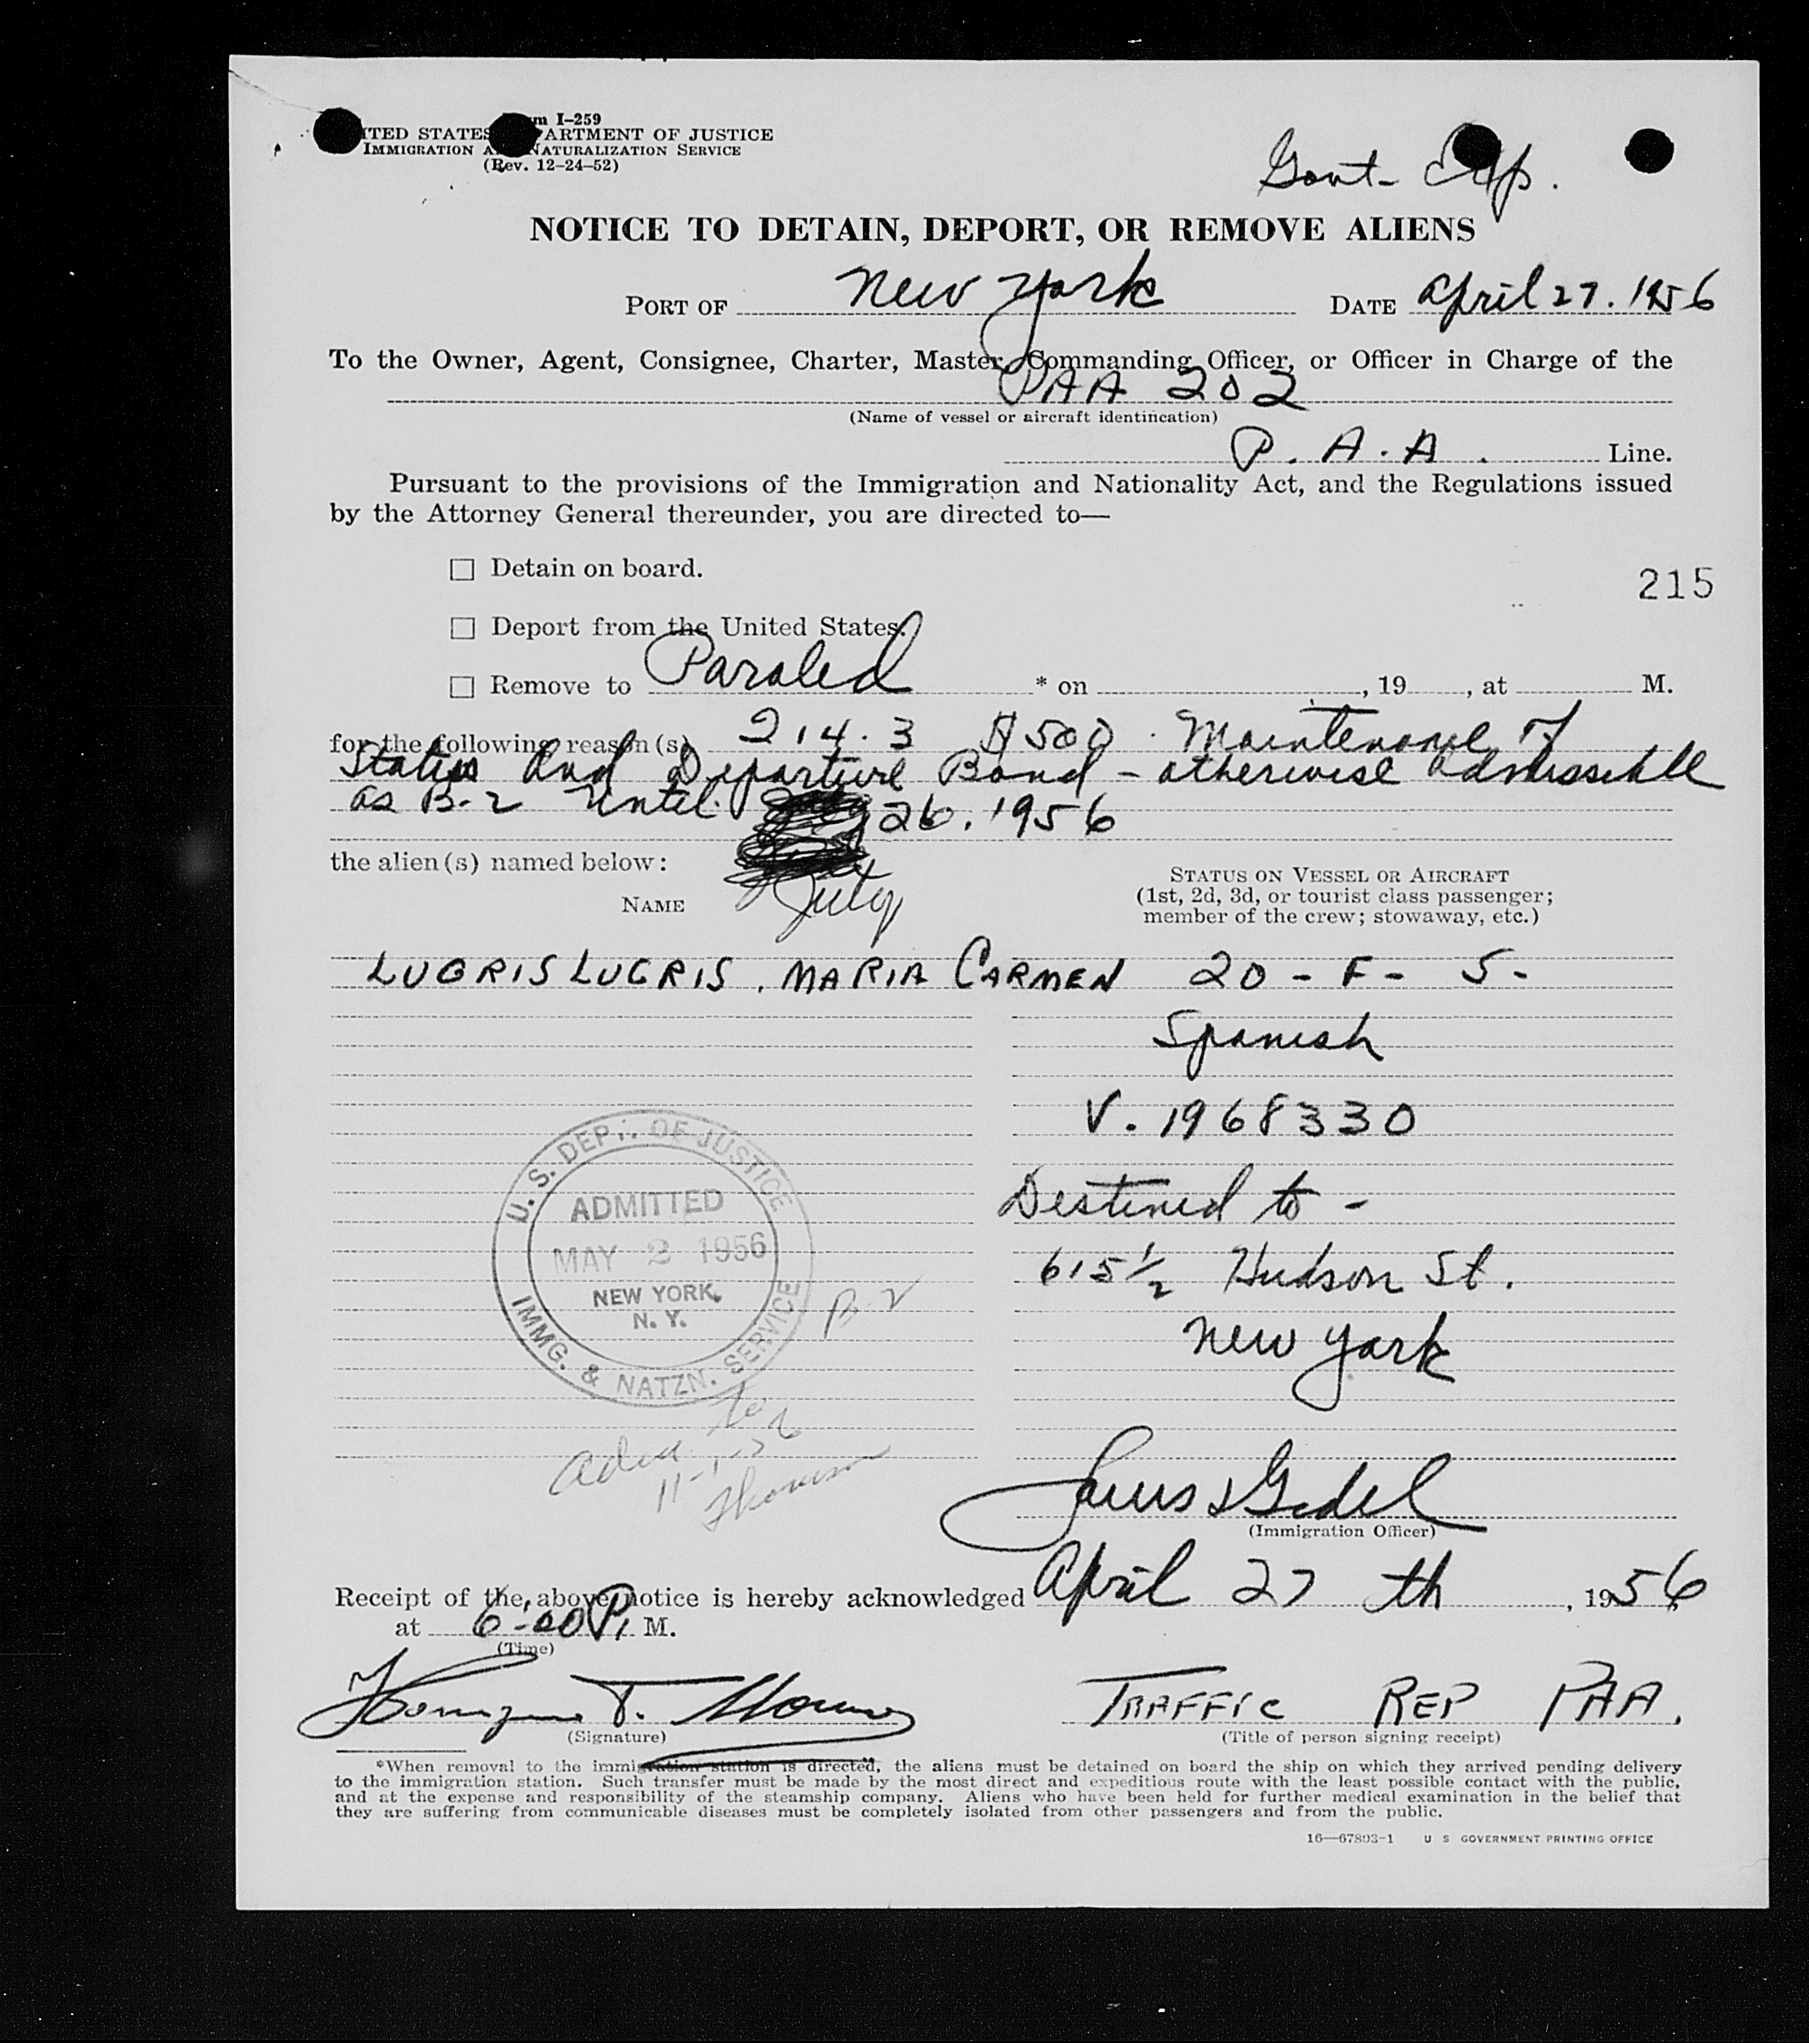 Form I-259
UNITED STATES DEPARTMENT OF JUSTICE
IMMIGRATION AND NATURALIZATION SERVICE
(Rev. 12-24-52)
Govt- Exp.
NOTICE TO DETAIN, DEPORT, OR REMOVE ALIENS
PORT OF New York DATE April 27. 1956
To the Owner, Agent, Consignee, Charter, Master, Commanding Officer, or Officer in Charge of the
PAA 202
(Name of vessel or aircraft identification)
P. A. A. Line.
Pursuant to the provisions of the Immigration and Nationality Act, and the Regulations issued
by the Attorney General thereunder, you are directed to—
☐ Detain on board.
215
☐ Deport from the United States.
☐ Remove to Paroled * on , 19 , at M.
for the following reason(s) 214.3 $500. Maintenance of
Status And Departure Bond - otherwise admissible
as B-2 Until 26. 1956
the alien(s) named below:
July
NAME
STATUS ON VESSEL OR AIRCRAFT
(1st, 2d, 3d, or tourist class passenger;
member of the crew; stowaway, etc.)
LUGRIS LUGRIS, MARIA CARMEN 20 - F - S -
Spanish
V. 1968330
Destined to -
615 1/2 Hudson St.
New York
U. S. DEPT. OF JUSTICE
ADMITTED
MAY 2 1956
NEW YORK,
N. Y.
IMMG. & NATZN. SERVICE
B-2
to
(Immigration Officer)
Receipt of the above notice is hereby acknowledged April 27 th , 1956
at 6:00 P. M.
(Time)
TRAFFIC REP PAA.
(Signature)
(Title of person signing receipt)
*When removal to the immigration station is directed, the aliens must be detained on board the ship on which they arrived pending delivery
to the immigration station. Such transfer must be made by the most direct and expeditious route with the least possible contact with the public,
and at the expense and responsibility of the steamship company. Aliens who have been held for further medical examination in the belief that
they are suffering from communicable diseases must be completely isolated from other passengers and from the public.
16—67803-1 U S GOVERNMENT PRINTING OFFICE